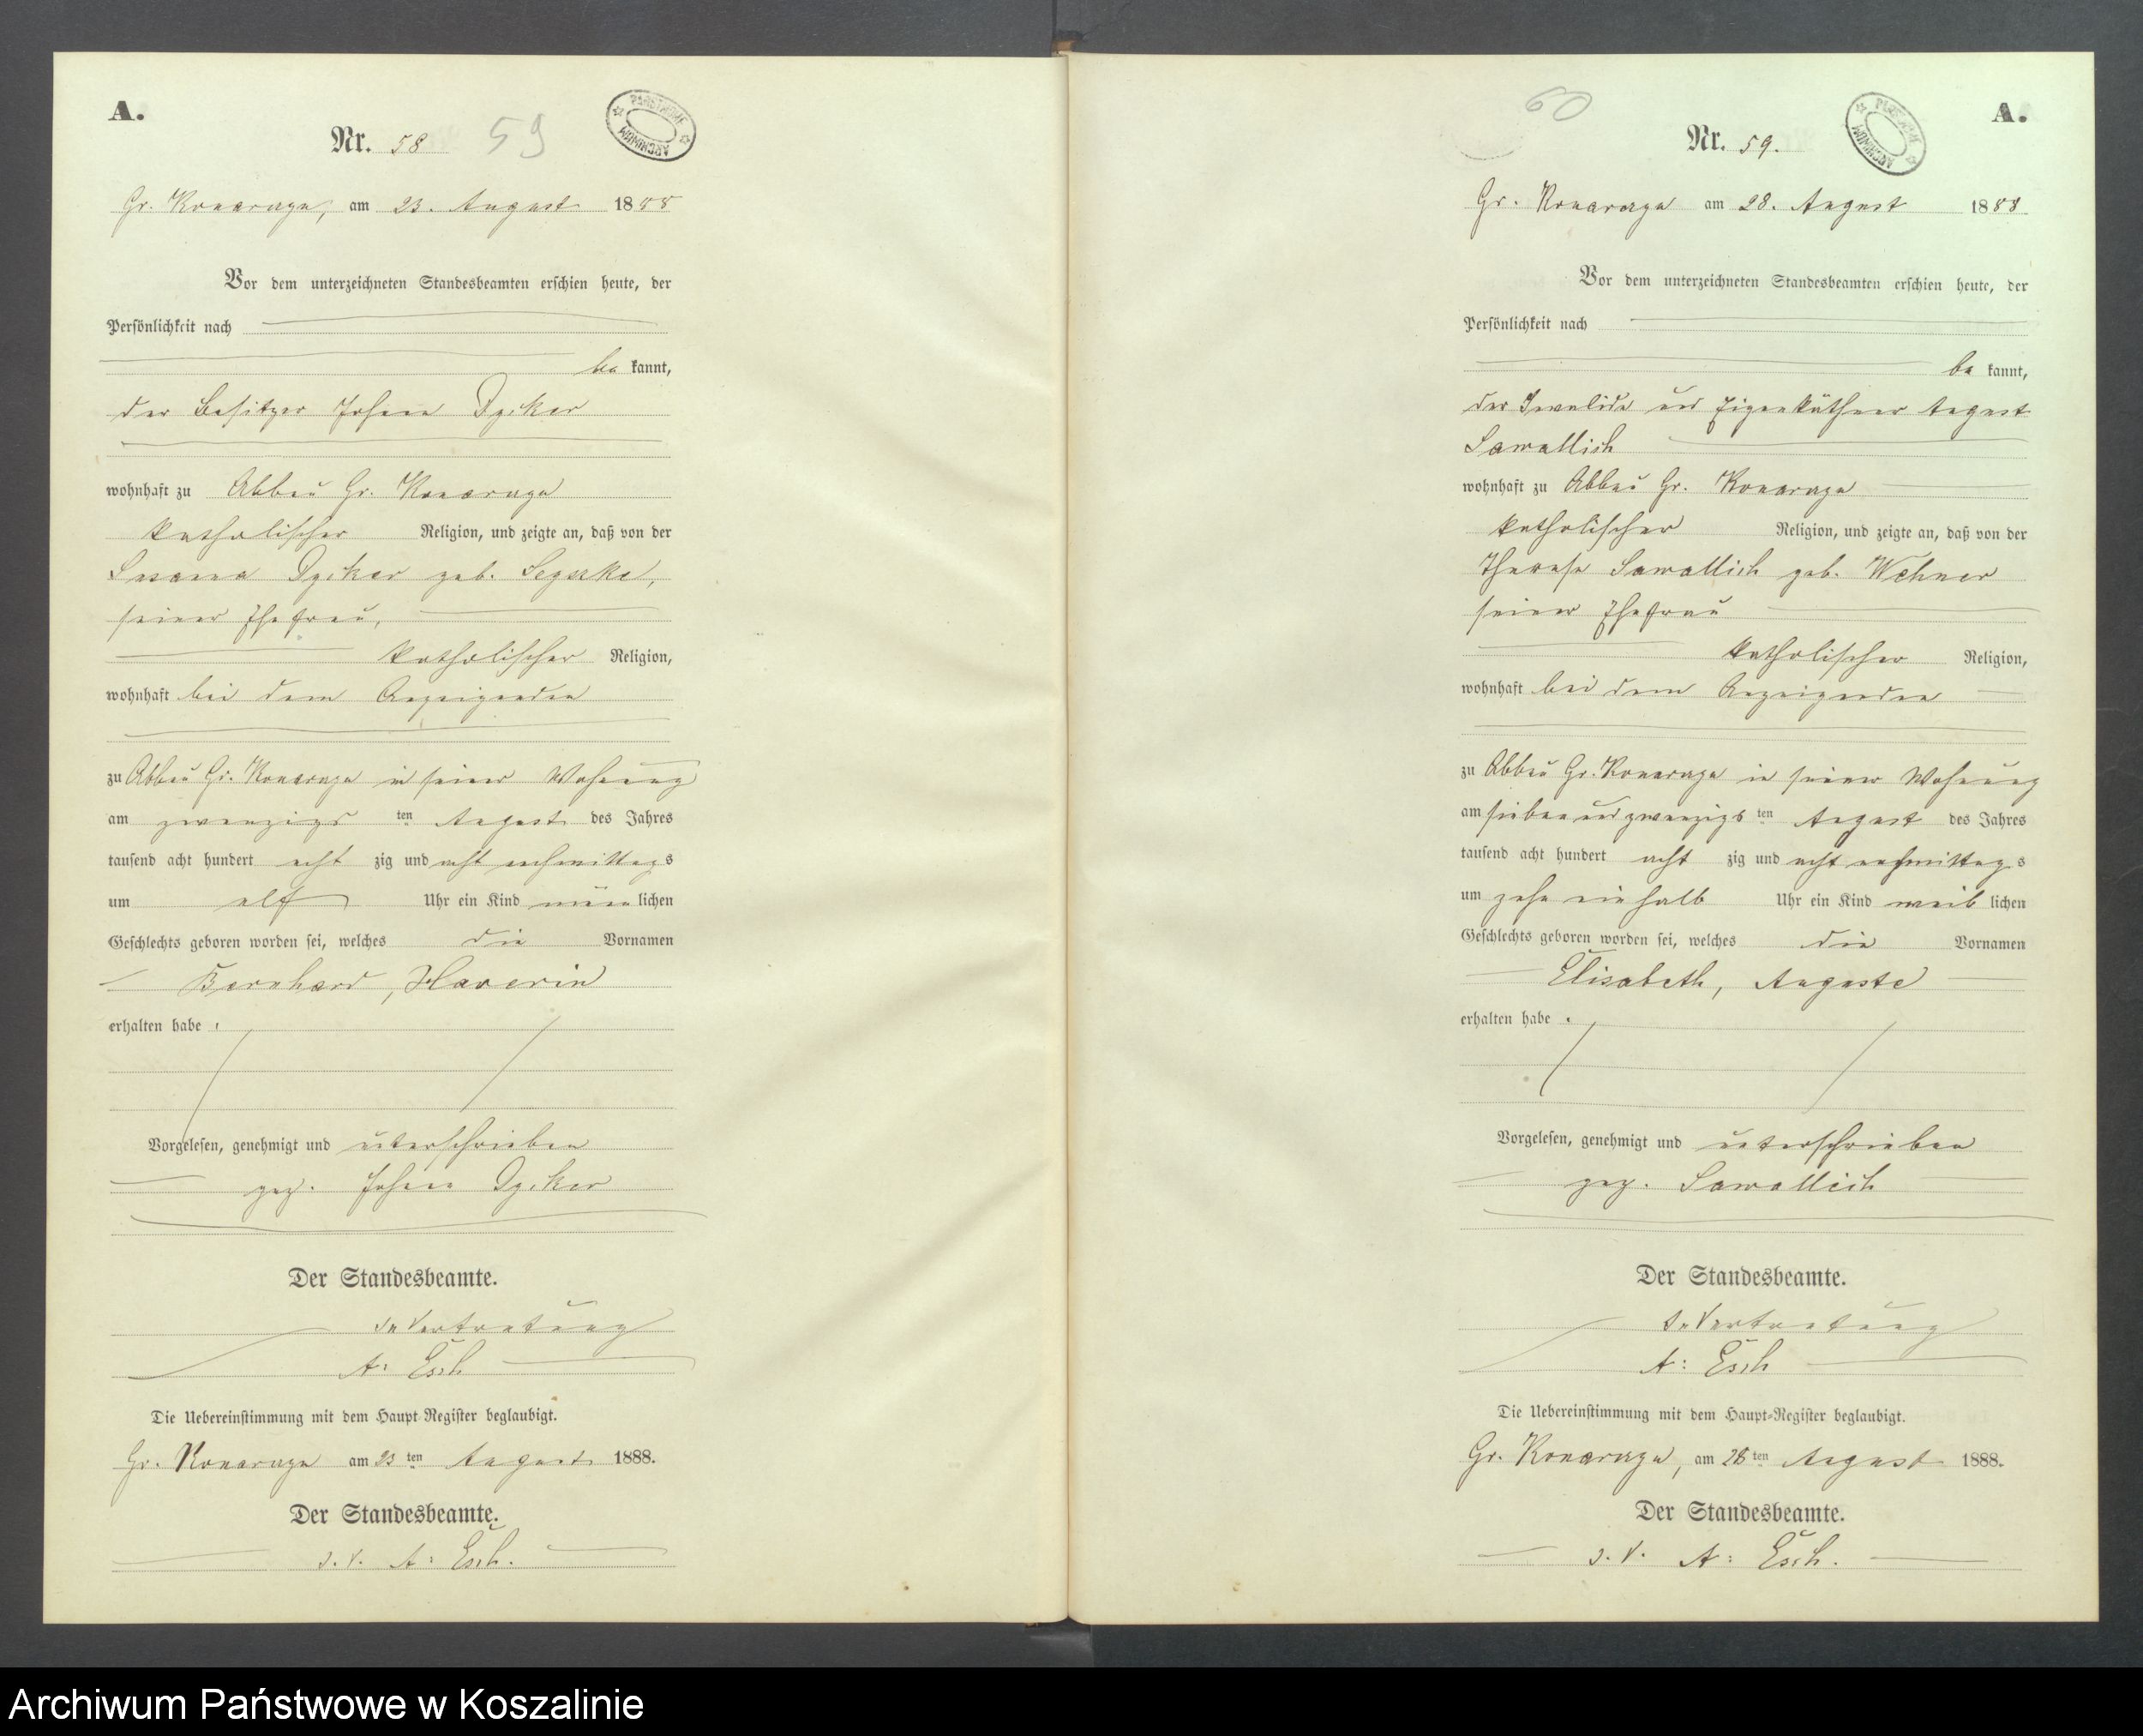 A.
Nr. 58
59
PAŃSTWOWE ARCHIWUM
Gr. Konarzyn, am 23. August 1888
Vor dem unterzeichneten Standesbeamten erschien heute, der
Persönlichkeit nach
be kannt,
der Besitzer Johann
wohnhaft zu Abbau Gr. Konarzyn
katholischer Religion, und zeigte an, daß von der
geb.
seiner Ehefrau,
katholischer Religion,
wohnhaft bei dem Anzeigenden
zu Abbau Gr. Konarzyn in seiner Wohnung
am zwanzigs ten August des Jahres
tausend acht hundert acht zig und acht nachmittags
um elf Uhr ein Kind männlichen
Geschlechts geboren worden sei, welches die Vornamen
Bernhard,
erhalten habe.
Vorgelesen, genehmigt und unterschrieben
gez. Johann
Der Standesbeamte.
In Vertretung
A: Esch
Die Uebereinstimmung mit dem Haupt-Register beglaubigt.
Gr. Konarzyn am 23 ten August 1888.
Der Standesbeamte.
I. V. A: Esch.
A.
Nr. 59.
60
PAŃSTWOWE ARCHIWUM
Gr. Konarzyn am 28. August 1888
Vor dem unterzeichneten Standesbeamten erschien heute, der
Persönlichkeit nach
be kannt,
der Invalide und Eigenkäthner August
Sawallich
wohnhaft zu Abbau Gr. Konarzyn
katholischer Religion, und zeigte an, daß von der
Therese Sawallich geb. Wehner
seiner Ehefrau
katholischer Religion,
wohnhaft bei dem Anzeigenden
zu Abbau Gr. Konarzyn in seiner Wohnung
am sieben und zwanzigs ten August des Jahres
tausend acht hundert acht zig und acht nachmittags
um zehn ein halb Uhr ein Kind weiblichen
Geschlechts geboren worden sei, welches die Vornamen
Elisabeth, Auguste
erhalten habe.
Vorgelesen, genehmigt und unterschrieben
gez. Sawallich
Der Standesbeamte.
In Vertretung
A: Esch
Die Uebereinstimmung mit dem Haupt-Register beglaubigt.
Gr. Konarzyn, am 28 ten August 1888.
Der Standesbeamte.
I. V. A: Esch.
Archiwum Państwowe w Koszalinie